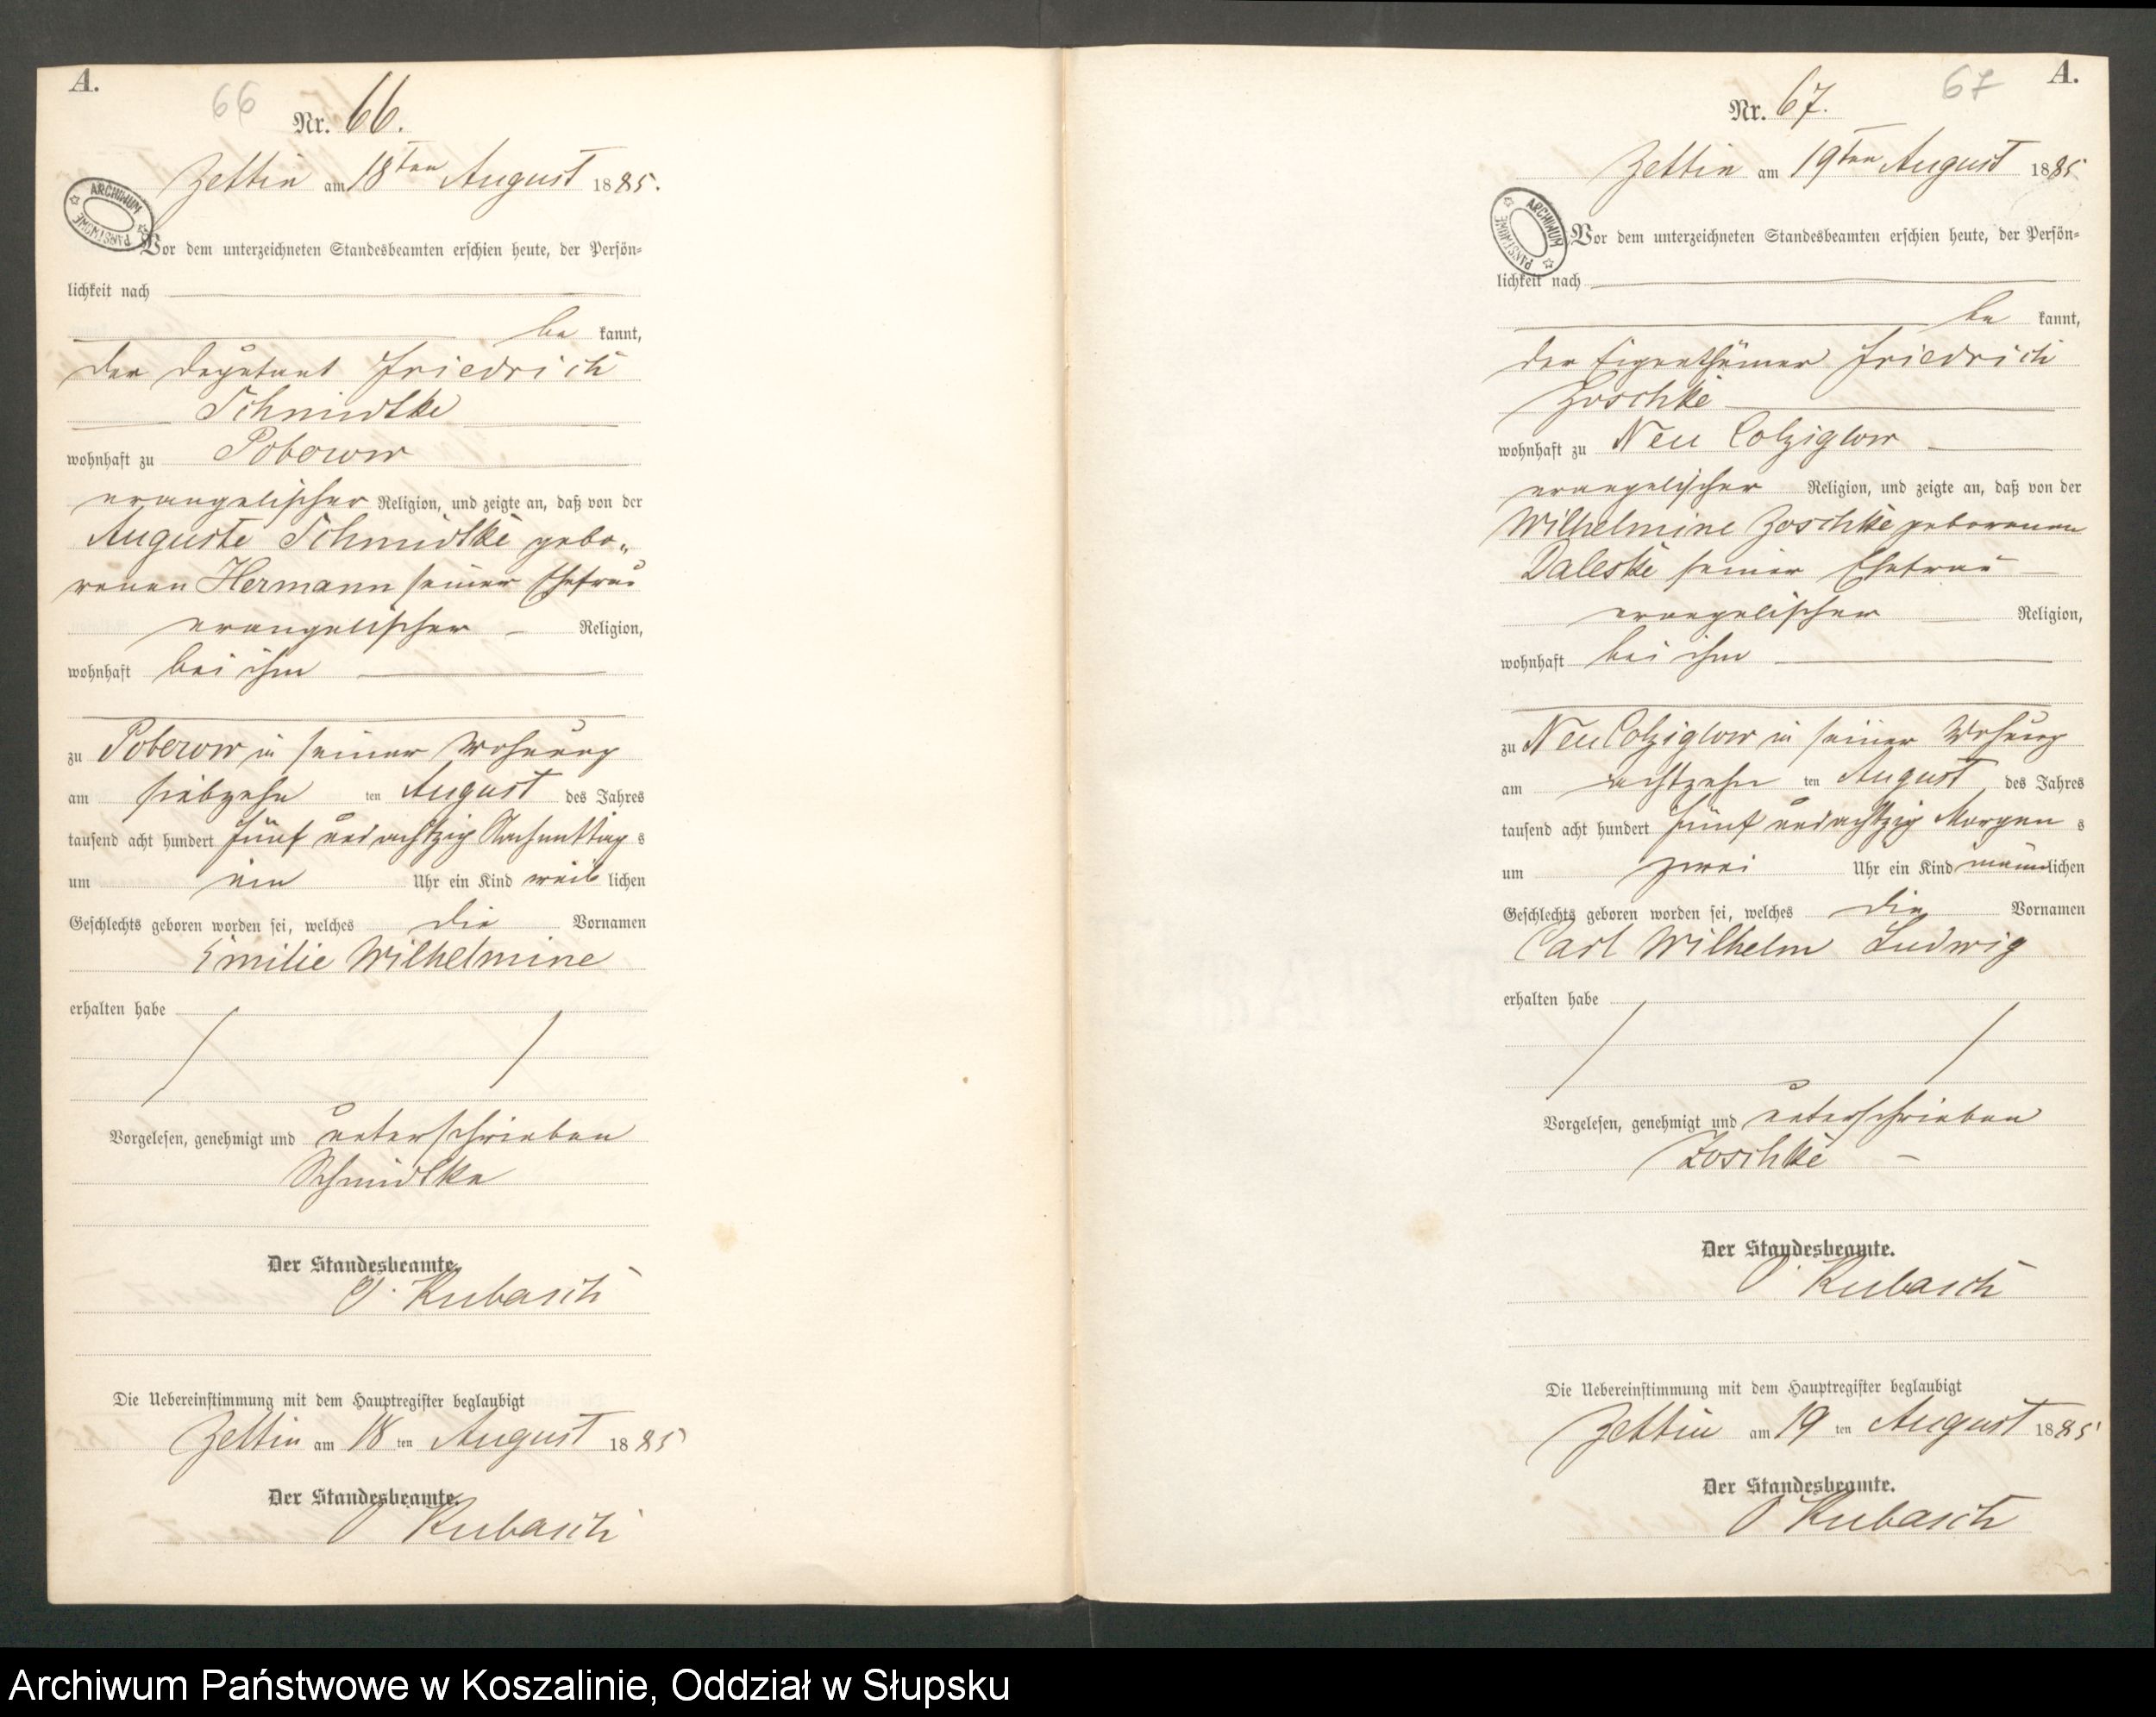 A.
66
Nr. 66.
Zettin am 18ten August 1885.
ARCHIWUM PAŃSTWOWE
Vor dem unterzeichneten Standesbeamten erschien heute, der Persön-
lichkeit nach
be kannt,
der Deputant Friedrich
Schmidtke
wohnhaft zu Poberow
evangelischer Religion, und zeigte an, daß von der
Auguste Schmidtke gebo„
renen Hermann seiner Ehefrau
evangelischer Religion,
wohnhaft bei ihm
zu Poberow in seiner Wohnung
am siebzehn ten August des Jahres
tausend acht hundert fünf und achtzig Nachmittag s
um ein Uhr ein Kind weib lichen
Geschlechts geboren worden sei, welches die Vornamen
Emilie Wilhelmine
erhalten habe
Vorgelesen, genehmigt und unterschrieben
Schmidtke
Der Standesbeamte.
Kubasch
Die Uebereinstimmung mit dem Hauptregister beglaubigt
Zettin am 18 ten August 1885
Der Standesbeamte.
Kubasch
A.
67
Nr. 67.
Zettin am 19ten August 1885
ARCHIWUM PAŃSTWOWE
Vor dem unterzeichneten Standesbeamten erschien heute, der Persön-
lichkeit nach
be kannt,
der Eigenthümer Friedrich
Zoschke
wohnhaft zu Neu Colziglow
evangelischer Religion, und zeigte an, daß von der
Wilhelmine Zoschke geborenen
Daleske seiner Ehefrau
evangelischer Religion,
wohnhaft bei ihm
zu Neu Colziglow in seiner Wohnung
am achtzehn ten August des Jahres
tausend acht hundert fünf und achtzig Morgen s
um zwei Uhr ein Kind männlichen
Geschlechts geboren worden sei, welches die Vornamen
Carl Wilhelm Ludwig
erhalten habe
Vorgelesen, genehmigt und unterschrieben
Zoschke
Der Standesbeamte.
Kubasch
Die Uebereinstimmung mit dem Hauptregister beglaubigt
Zettin am 19 ten August 1885
Der Standesbeamte.
Kubasch
Archiwum Państwowe w Koszalinie, Oddział w Słupsku